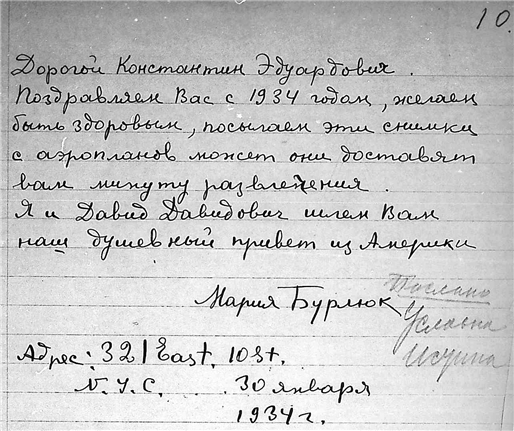 10.
Дорогой Константин Эдуардович.
Поздравляем Вас с 1934 годом, желаем
быть здоровым, посылаем эти снимки
с аэропланов может они доставят
вам минуту развлечения.
Я и Давид Давидович шлем Вам
наш душевный привет из Америки
Мария Бурлюк
Послано
Адрес: 321 East. 10 St.
N. Y. C. . . . 30 января
1934 г.